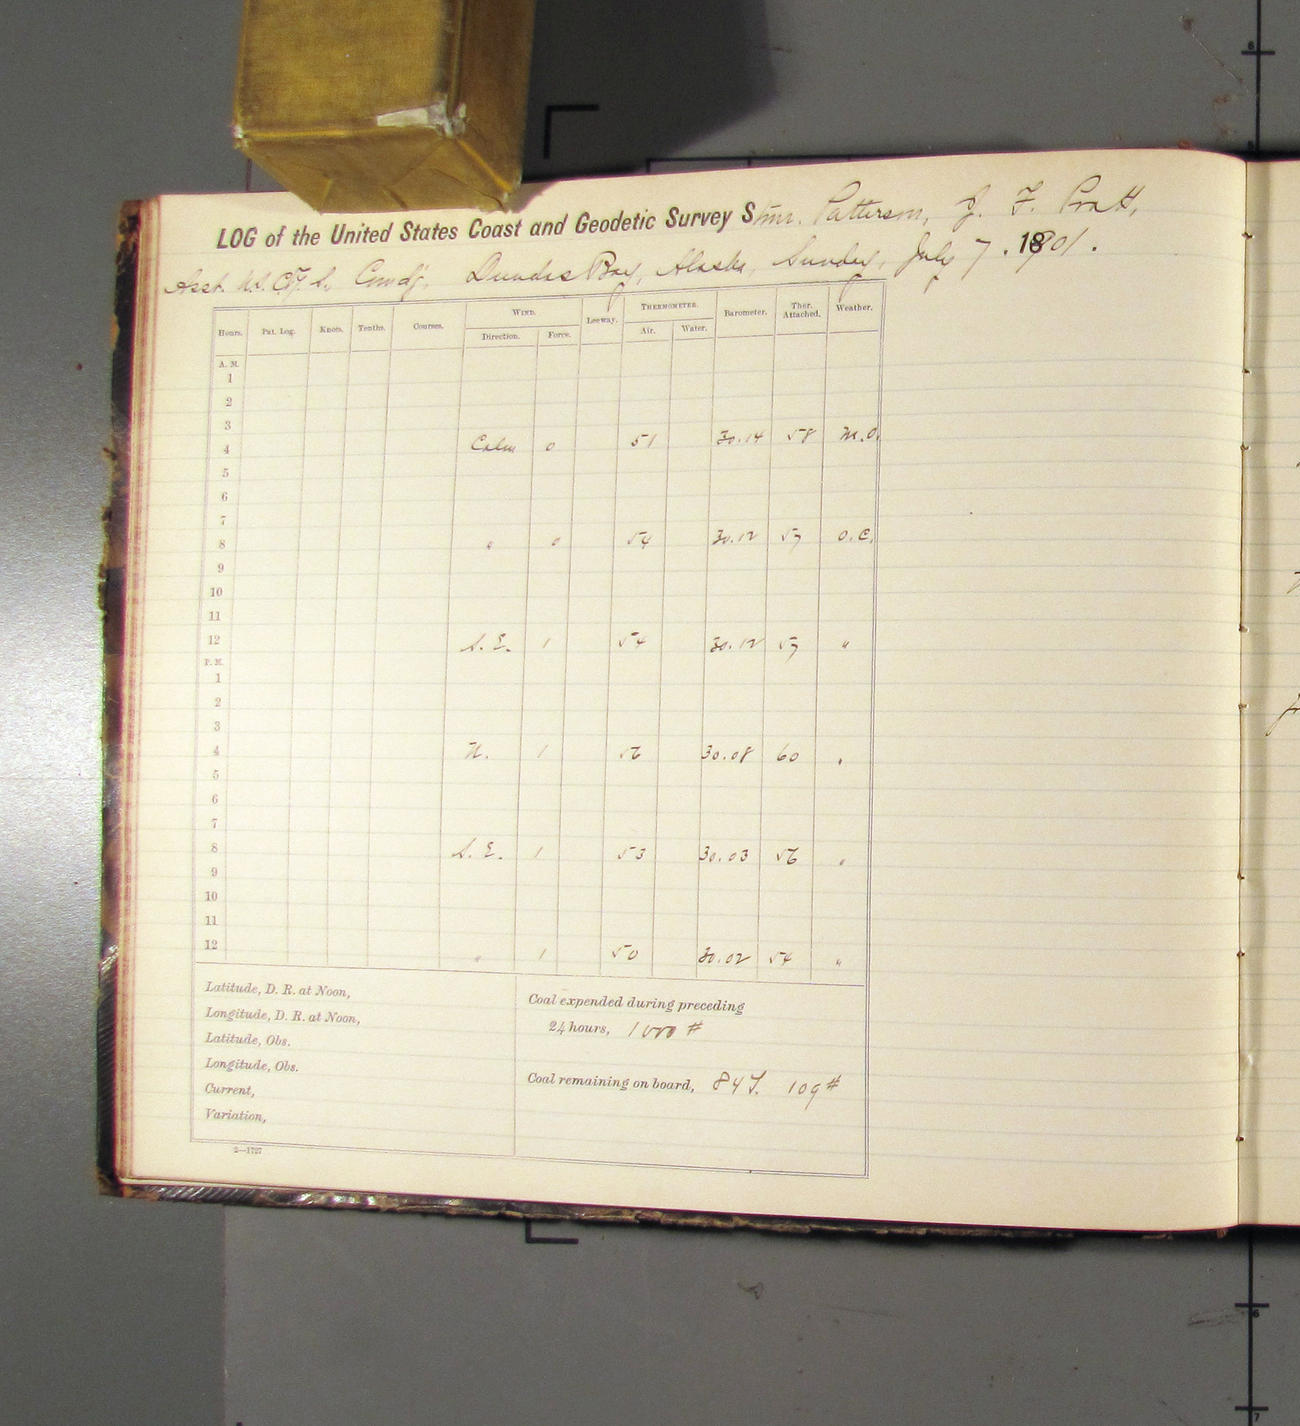 LOG of the United States Coast and Geodetic Survey Stmr. Patterson, J. F. Pratt,
Asst. U.S. C. & G. S. Comdg. Dundas Bay, Alaska, Sunday, July 7. 1901.
Hours. Pat. Log. Knots. Tenths. Courses. WIND. Leeway. THERMOMETER. Barometer. Ther. Attached. Weather.
Direction. Force. Air. Water.
A. M.
1
2
3
4 Calm 0 51 30.14 58 M.O.
5
6
7
8 " 0 54 30.12 57 O.C.
9
10
11
12 S.E. 1 54 30.12 57 "
P. M.
1
2
3
4 N. 1 56 30.08 60 "
5
6
7
8 S.E. 1 53 30.03 56 "
9
10
11
12 " 1 50 30.02 54 "
Latitude, D. R. at Noon,
Longitude, D. R. at Noon,
Latitude, Obs.
Longitude, Obs.
Current,
Variation,
Coal expended during preceding
24 hours, 1000 #
Coal remaining on board, 84 T. 109 #
2—1727
6
6
7